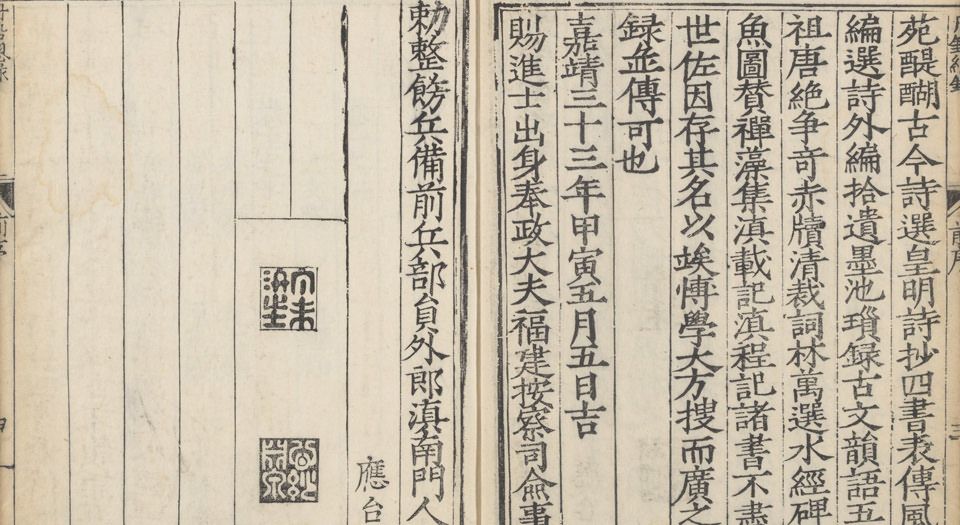 苑醍醐古今詩選皇明詩抄四書表傳風
編選詩外編拾遺墨池瑣録古文韻語五
祖唐絶争竒赤牘清裁詞林萬選水經碑
魚圖賛禪藻集滇載記滇程記諸書不盡
世佐因存其名以竢愽學大方搜而廣之
録並傳可也
嘉靖三十三年甲寅五月五日吉
賜進士出身奉政大夫福建按察司僉事
勅整飭兵備前兵部貟外郎滇南門人
應台